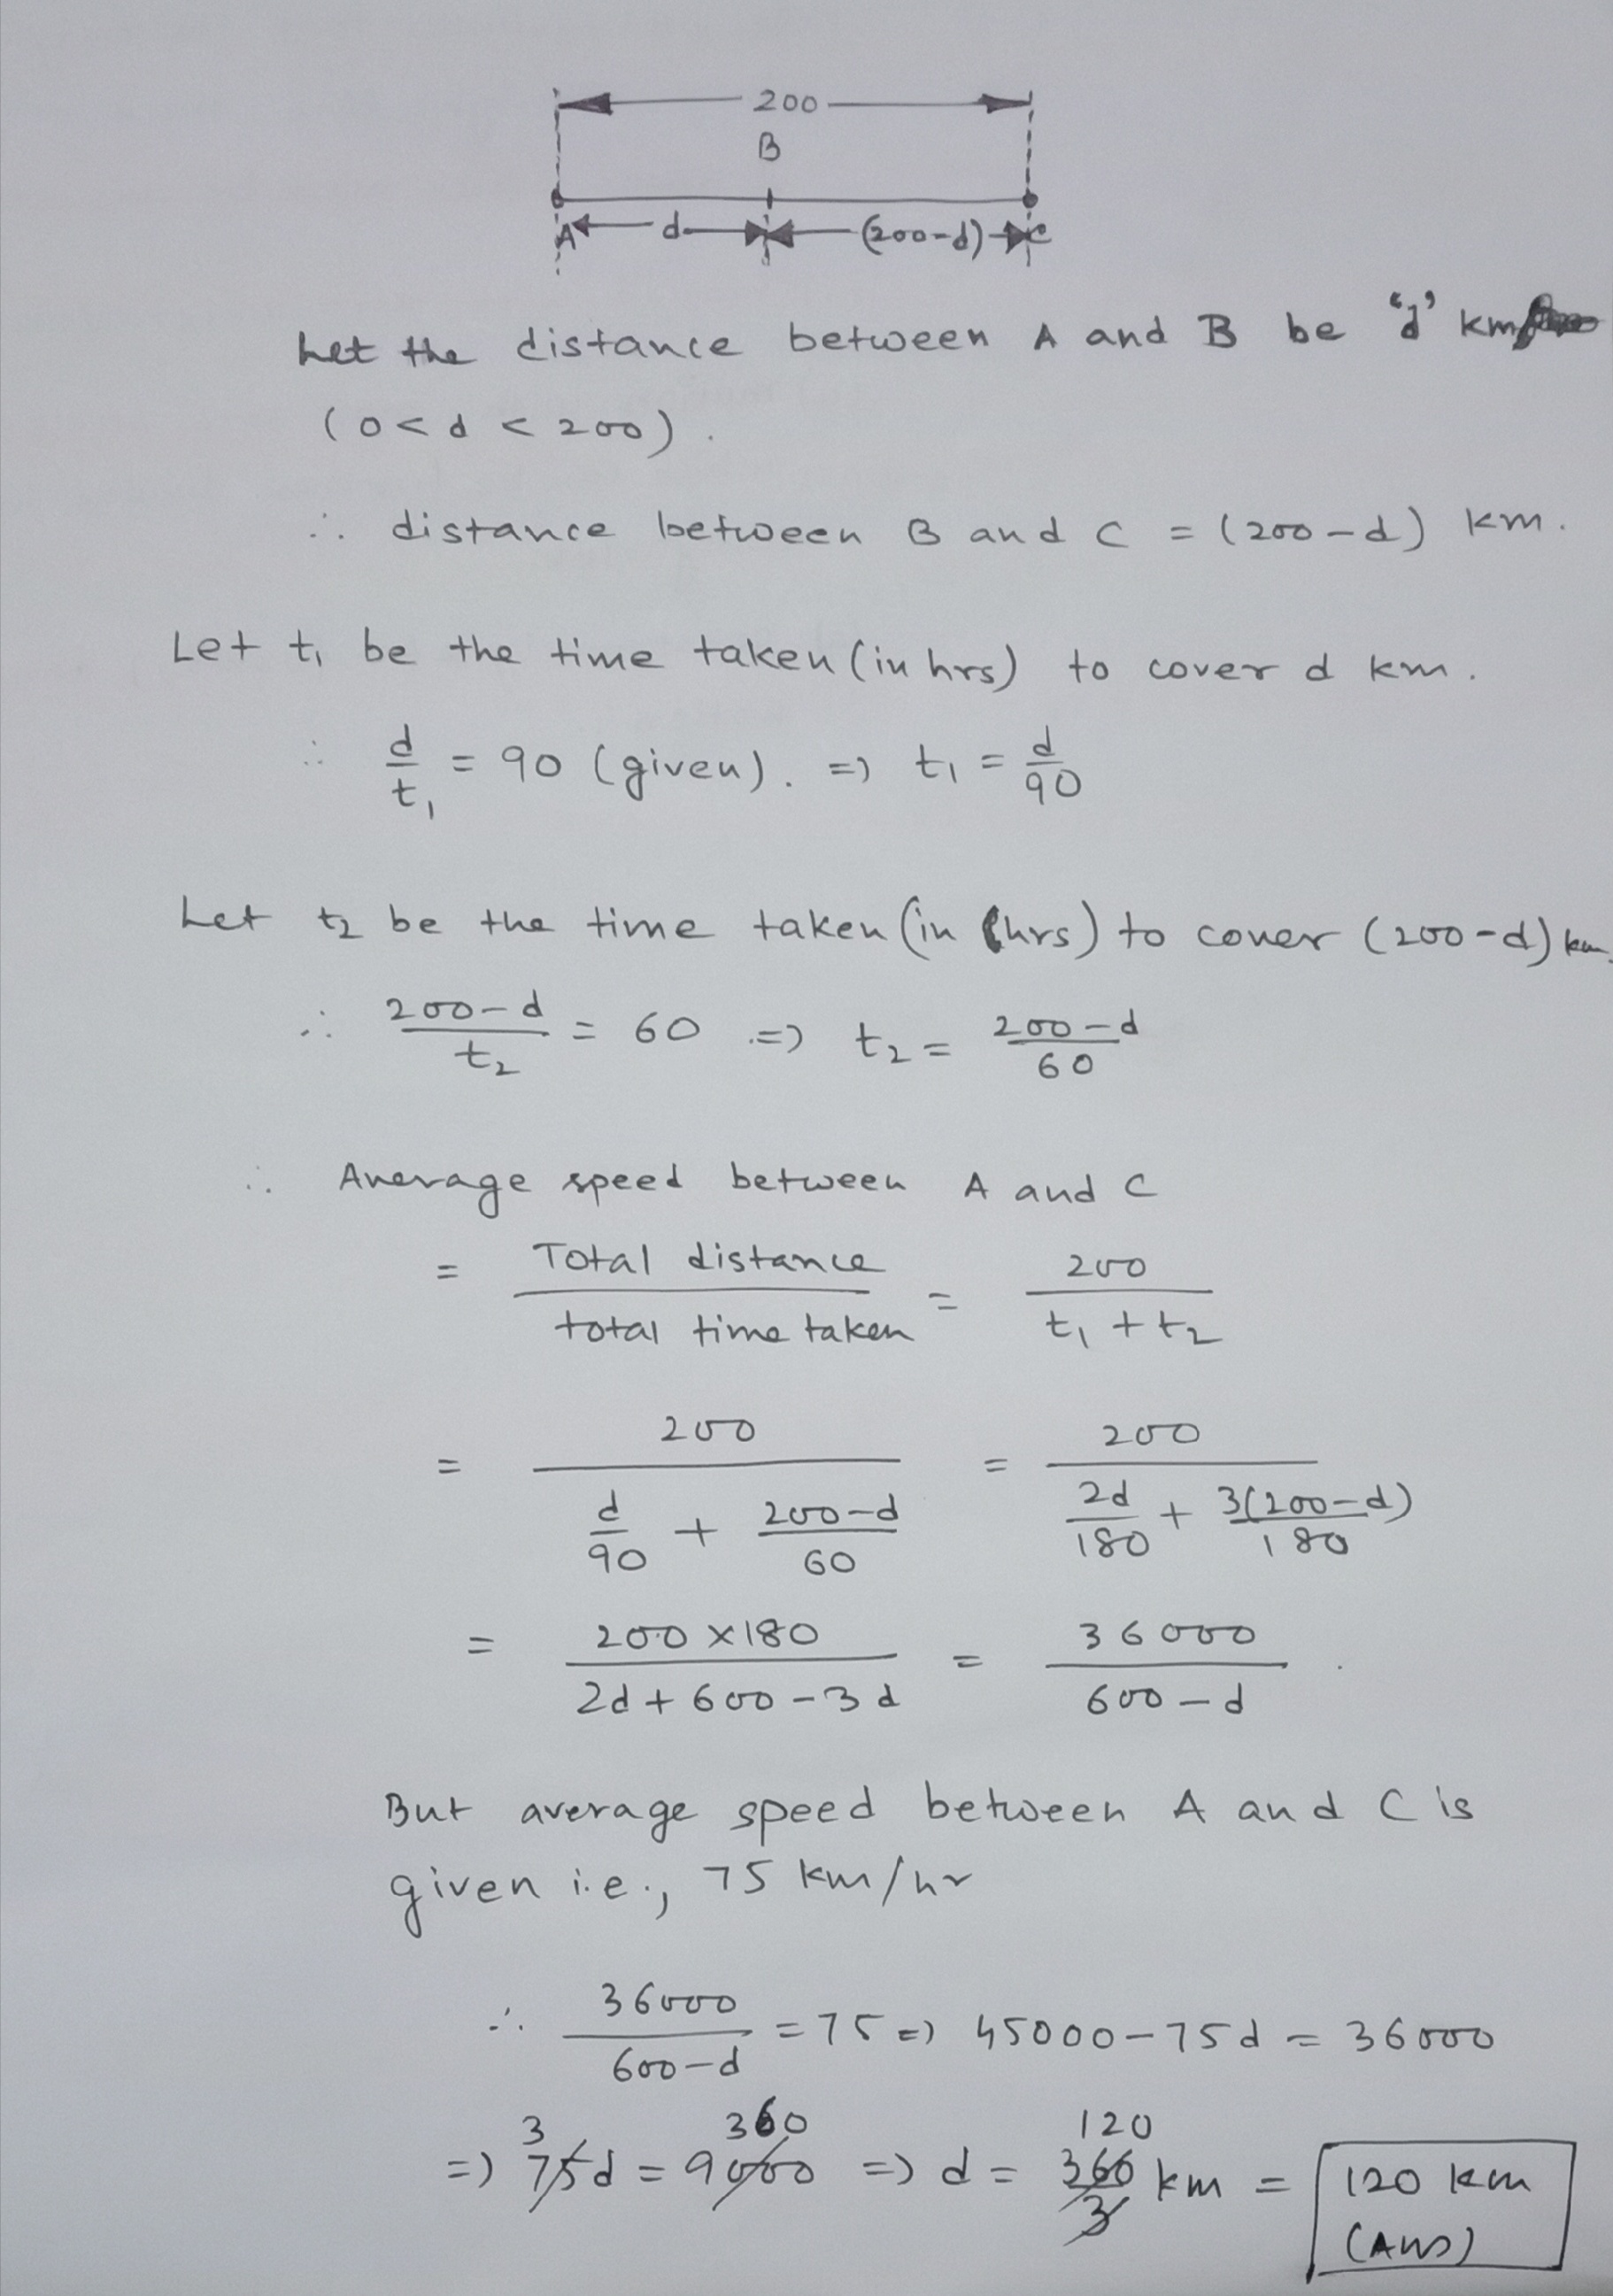 200
B
A d (200-d) C
Let the distance between A and B be 'd' km
(0 < d < 200).
∴ distance between B and C = (200-d) km.
Let t₁ be the time taken (in hrs) to cover d km.
∴ d/t₁ = 90 (given). => t₁ = d/90
Let t₂ be the time taken (in hrs) to cover (200-d) km.
∴ (200-d)/t₂ = 60 => t₂ = (200-d)/60
∴ Average speed between A and C
= Total distance/total time taken = 200/(t₁ + t₂)
= 200/(d/90 + (200-d)/60) = 200/(2d/180 + 3(200-d)/180)
= 200 × 180/(2d + 600 - 3d) = 36000/(600-d).
But average speed between A and C is
given i.e., 75 km/hr
∴ 36000/(600-d) = 75 => 45000 - 75d = 36000
3 360 120
=> 75d = 9000 => d = 360/3 km = 120 km
(Ans)